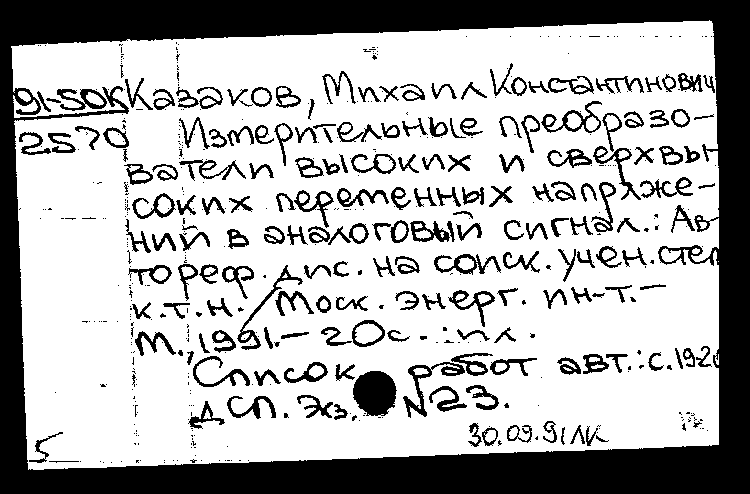 91-50К Казаков, Михаил Константинович
2570 Измерительные преобразо-
ватели высоких и сверхвы
соких переменных напряже-
ний в аналоговый сигнал.: Ав-
тореф. дис. на соиск. учен. степ
к.т.н. / Моск. энерг. ин-т. -
М., 1991. - 20с. : ил.
Список работ авт.: с. 19-20
ДСП. Экз. N 23.
30.09.91 ЛК
5